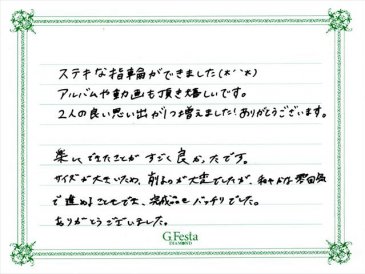 ステキな指輪ができました(*^^*)
アルバムや動画も頂き嬉しいです。
2人の良い思い出が1つ増えました!ありがとうございます。
楽しくできたことがすごく良かったです。
サイズが大きいため、削るのが大変でしたが、和やかな雰囲気
で進めることもでき、完成品もバッチリでした。
ありがとうございました。
G.Festa
DIAMOND